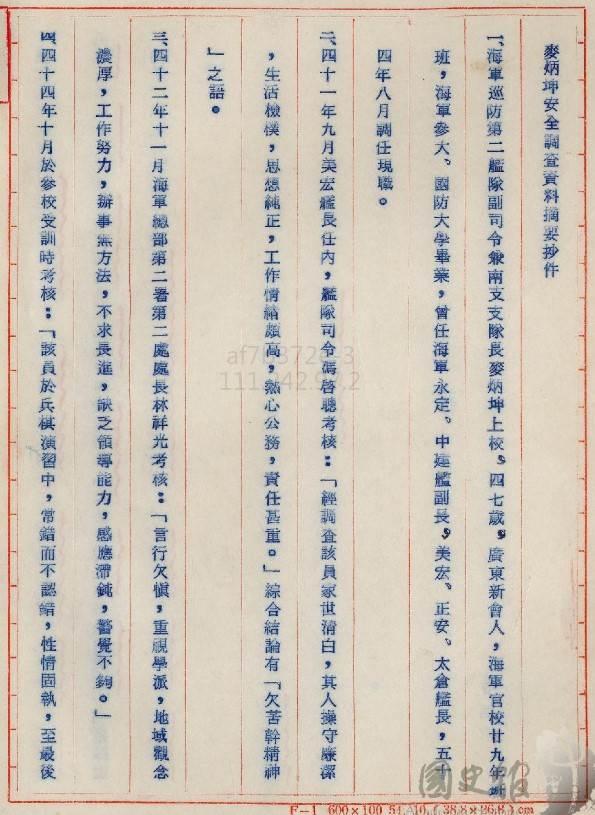 麥炳坤安全調查資料摘要抄件
一、海軍巡防第二艦隊副司令兼南支支隊長麥炳坤上校，四七歲，廣東新會人，海軍官校廿九年班
班，海軍參大、國防大學畢業，曾任海軍永定、中建艦副長，美宏、正安、太倉艦長，五十
四年八月調任現職。
二、四十一年九月美宏艦長任內，艦隊司令馮啓聰考核：「經調查該員家世清白，其人操守廉潔
，生活儉樸，思想純正，工作情緒頗高，熱心公務，責任甚重。」綜合結論有「欠苦幹精神
」之語。
三、四十二年十一月海軍總部第二署第二處處長林祥光考核：「言行欠慎，重視學派，地域觀念
濃厚，工作努力，辦事無方法，不求長進，缺乏領導能力，感應滯鈍，警覺不夠。」
四、四十四年十月於參校受訓時考核：「該員於兵棋演習中，常錯而不認錯，性情固執，至最後
國史館
F-1 600×100 54.10.